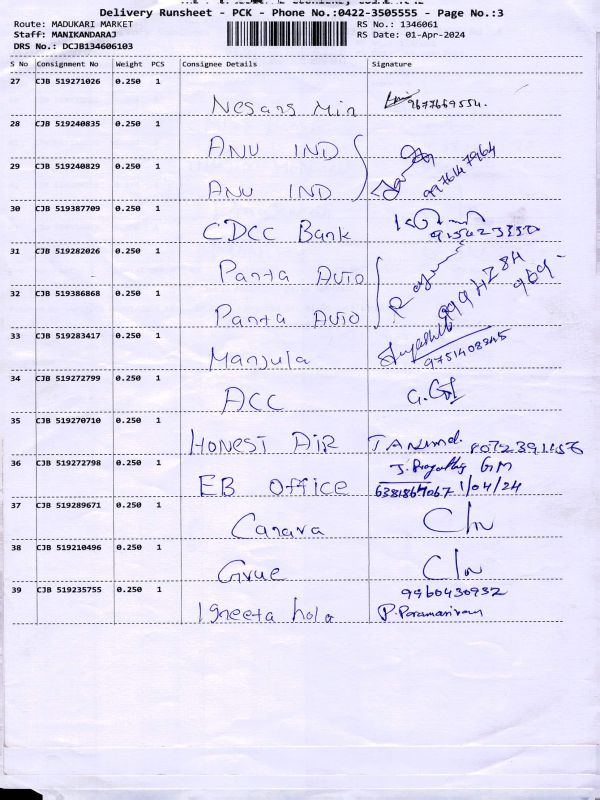 Delivery Runsheet - PCK - Phone No.:0422-3505555 - Page No.:3
Route: MADUKARI MARKET
RS No.: 1346061
Staff: MANIKANDARAJ
RS Date: 01-Apr-2024
DRS No.: DCJB134606103
S No Consignment No Weight PCS Consignee Details Signature
27 CJB 519271026 0.250 1
Nesans Min 9677669554.
28 CJB 519240835 0.250 1
ANU IND
29 CJB 519240829 0.250 1
ANU IND 9976147964
30 CJB 519387709 0.250 1
CDCC Bank
31 CJB 519282026 0.250 1
Panta AUTO
32 CJB 519386868 0.250 1
Panta AUTO
33 CJB 519283417 0.250 1
Manjula 9751408245
34 CJB 519272799 0.250 1
ACC
35 CJB 519270710 0.250 1
HONEST AIR
36 CJB 519272798 0.250 1
EB Office 6381864067 1/04/24
37 CJB 519289671 0.250 1
Canara
38 CJB 519210496 0.250 1
Grue
39 CJB 519235755 0.250 1
9960430932
Igneeta hola P. Paramasivam